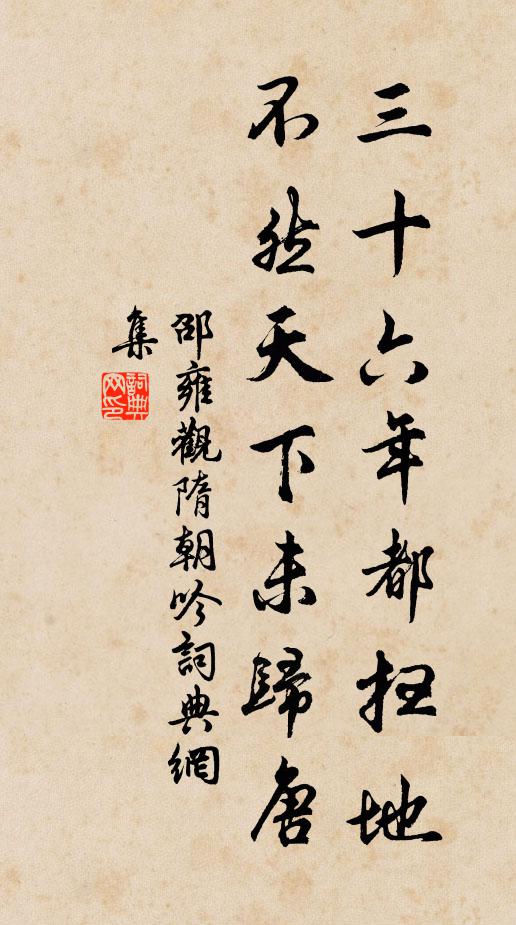 三十六年都扫地
不然天下未歸唐
邵雍觀隋朝吟詞典網
集
詞典
网印